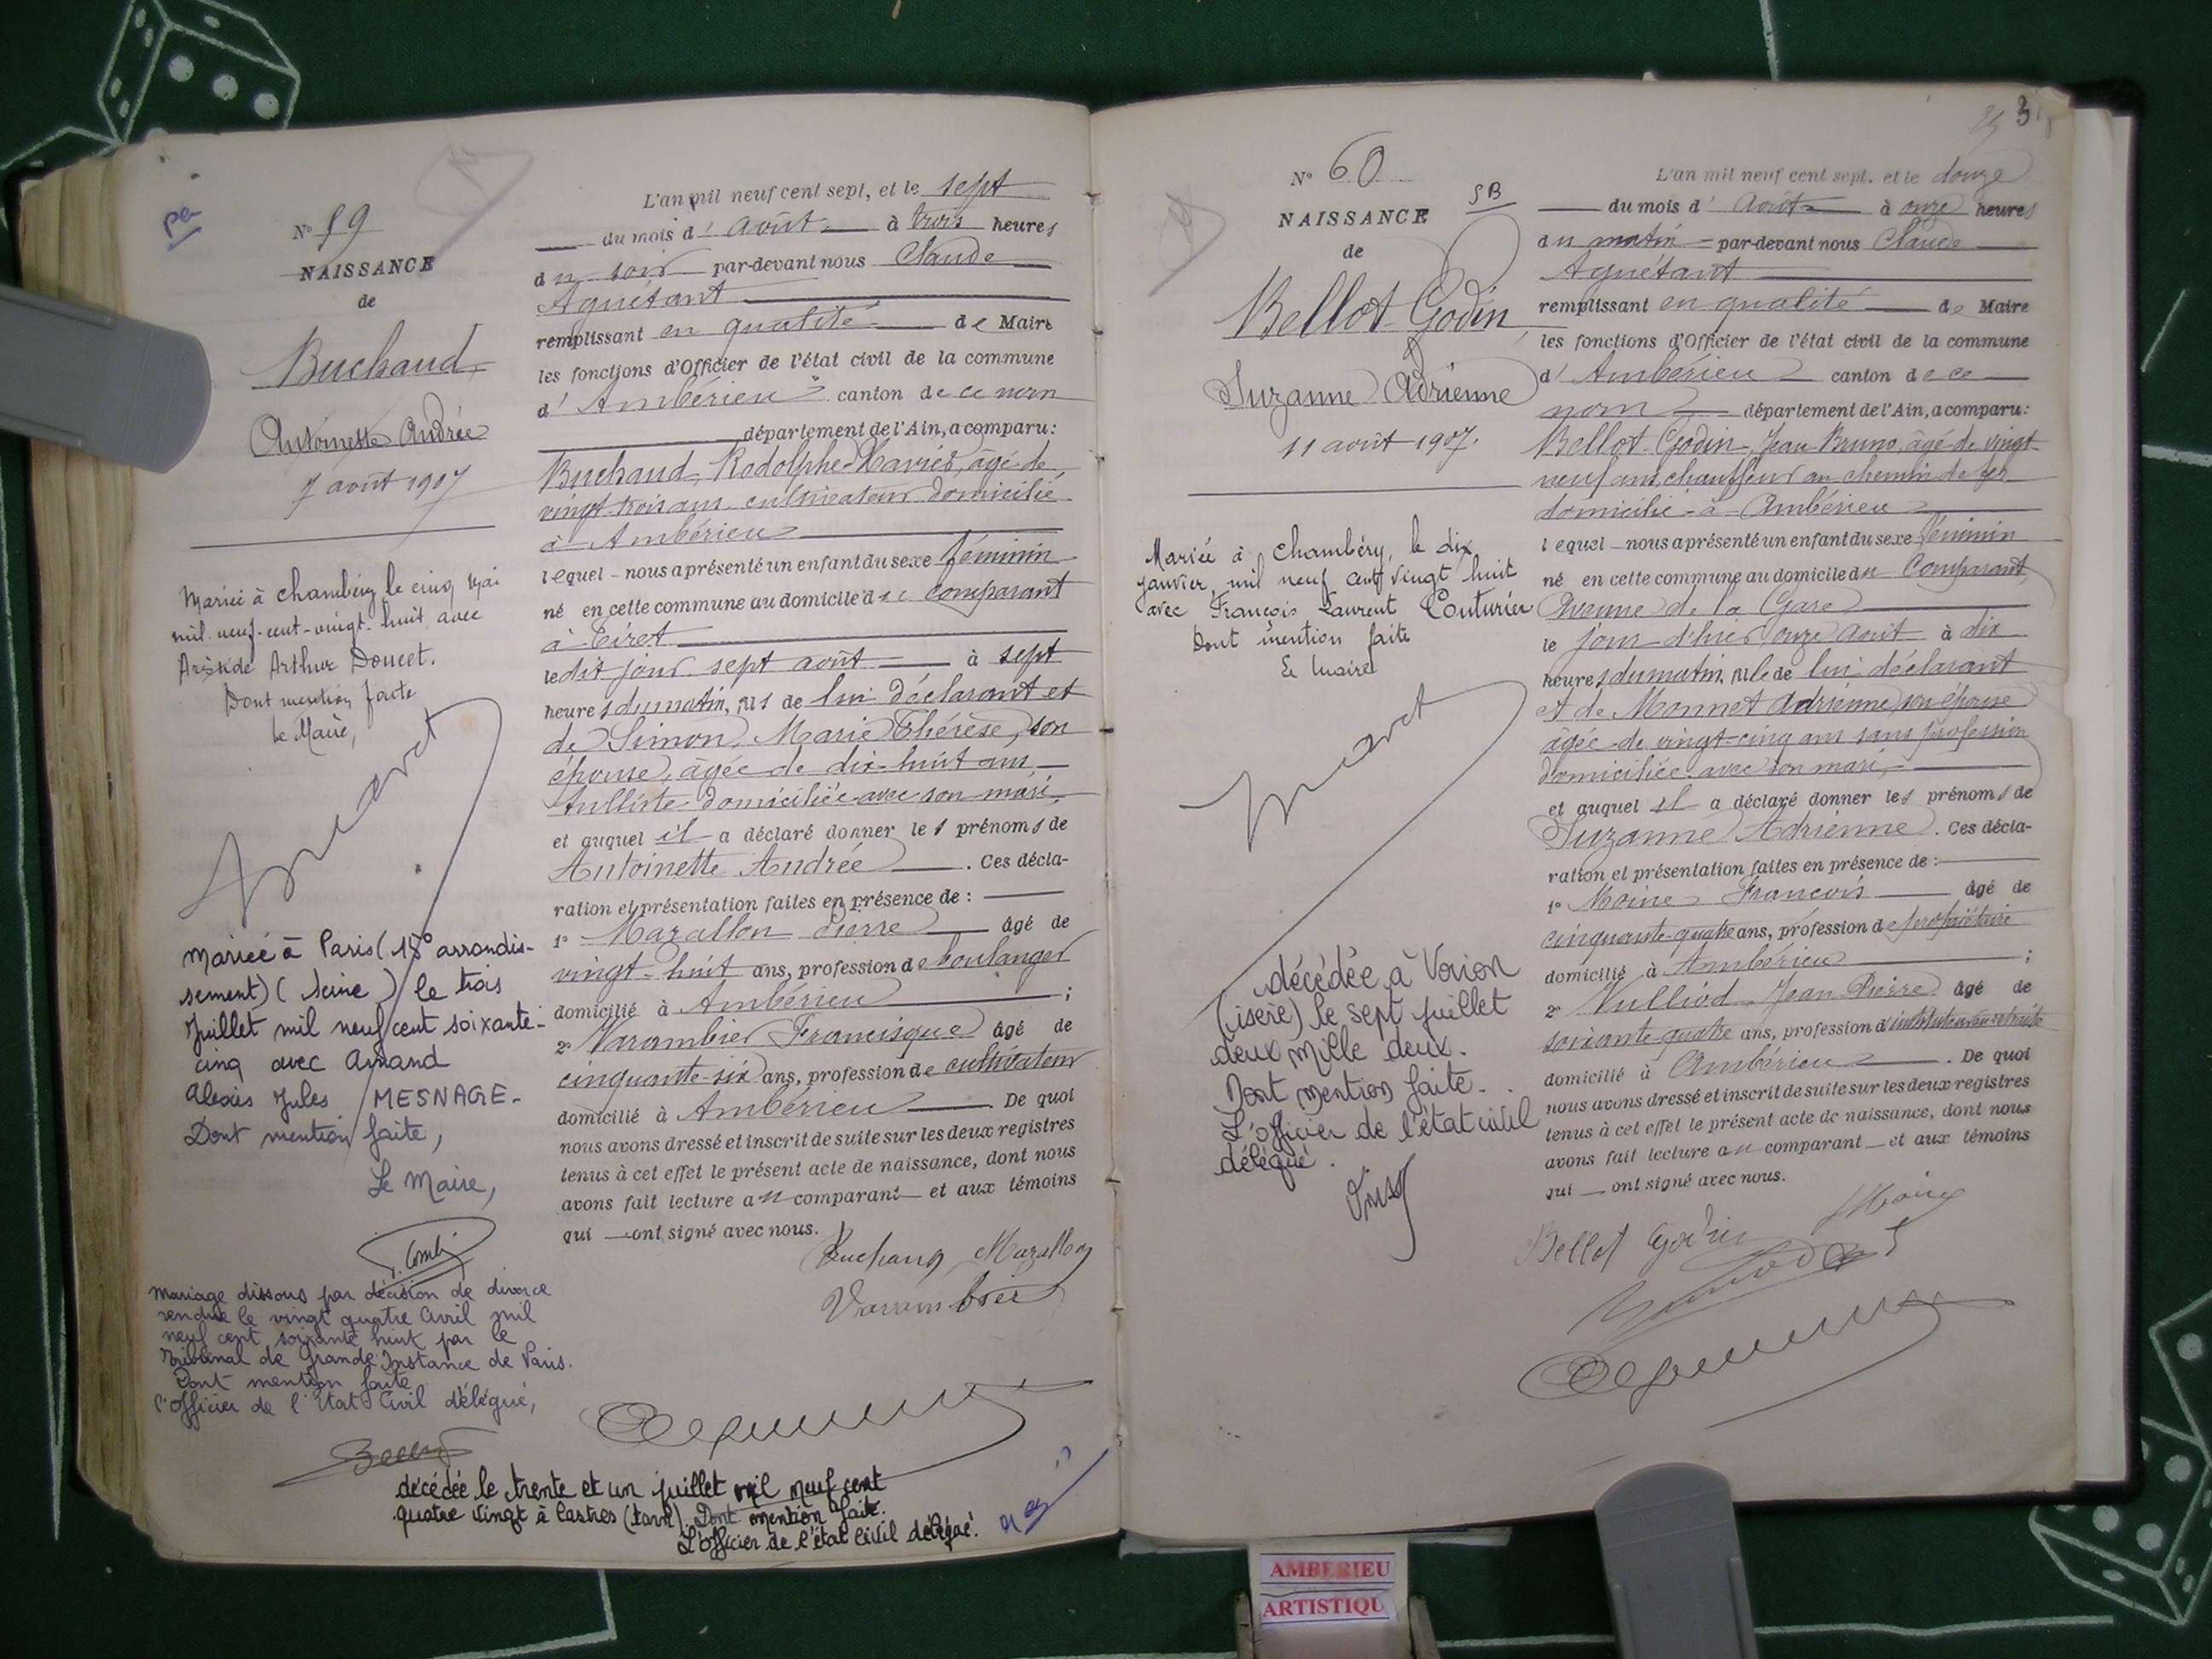 N° 59
NAISSANCE
de
Buchaud
Antoinette Andrée
7 août 1907
Mariée à Chambéry le cinq mai
mil-neuf-cent-vingt-huit avec
Aristide Arthur Doucet.
Dont mention faite
Le Maire,
Mariée à Paris (15° arrondis-
sement) (Seine) le trois
Juillet mil neuf cent soixante-
cinq avec Amand
Alexis Jules MESNAGE-
Dont mention faite,
Le Maire,
Mariage dissous par décision de divorce
rendue le vingt quatre avril mil
neuf cent soixante huit par le
Tribunal de Grande Instance de Paris.
Dont mention faite
l'officier de l'Etat Civil délégué,
L'an mil neuf cent sept, et le sept
du mois d'août à trois heures
du soir par-devant nous Claude
Aguétant
remplissant en qualité de Maire
les fonctions d'Officier de l'état civil de la commune
d'Ambérieu canton de ce nom
département de l'Ain, a comparu:
Buchaud, Rodolphe-Xavier, âgé de
vingt-trois ans, cultivateur domicilié
à Ambérieu
lequel nous a présenté un enfant du sexe féminin
né en cette commune au domicile du comparant
à Tiret
ledit jour sept août à sept
heures du matin, fils de lui déclarant et
de Simon, Marie Thérèse, son
épouse, âgée de dix-huit ans,
tulliste domiciliée avec son mari,
et auquel il a déclaré donner les prénoms de
Antoinette Andrée. Ces décla-
ration et présentation faites en présence de :
1° Marallon Pierre âgé de
vingt-huit ans, profession de boulanger
domicilié à Ambérieu ;
2° Varambier Francisque âgé de
cinquante-six ans, profession de cultivateur
domicilié à Ambérieu. De quoi
nous avons dressé et inscrit de suite sur les deux registres
tenus à cet effet le présent acte de naissance, dont nous
avons fait lecture au comparant et aux témoins
qui ont signé avec nous.
Buchaud Marallon
Varambier
décédée le trente et un juillet mil neuf cent
quatre vingt à Castres (Tarn). Dont mention faite.
L'officier de l'état civil délégué.
N° 60
SB
NAISSANCE
de
Bellot-Godin
Suzanne Adrienne
11 août 1907.
Mariée à Chambéry, le dix
janvier mil neuf cent vingt huit
avec François Laurent Couturier
Dont mention faite
Le Maire
décédée à Voiron
(isère) le sept juillet
deux mille deux.
Dont mention faite.
L'officier de l'état civil
délégué.
L'an mil neuf cent sept, et le douze
du mois d'août à onze heures
du matin par-devant nous Claude
Aguétant
remplissant en qualité de Maire
les fonctions d'Officier de l'état civil de la commune
d'Ambérieu canton de ce
nom département de l'Ain, a comparu:
Bellot-Godin, Jean Bruno, âgé de vingt-
neuf ans, chauffeur au chemin de fer
domicilié à Ambérieu
lequel nous a présenté un enfant du sexe féminin
né en cette commune au domicile du comparant,
Avenue de la Gare
le jour d'hier onze août à dix
heures du matin, fille de lui déclarant
et de Monnet Adrienne, son épouse
âgée de vingt-cinq ans sans profession
domiciliée avec son mari,
et auquel il a déclaré donner les prénoms de
Suzanne Adrienne. Ces décla-
ration et présentation faites en présence de :
1° Moine François âgé de
cinquante-quatre ans, profession de propriétaire
domicilié à Ambérieu ;
2° Vulliod Jean Pierre âgé de
soixante-quatre ans, profession d'instituteur en retraite
domicilié à Ambérieu. De quoi
nous avons dressé et inscrit de suite sur les deux registres
tenus à cet effet le présent acte de naissance, dont nous
avons fait lecture au comparant et aux témoins
qui ont signé avec nous.
Bellot Godin Moine
AMBERIEU
ARTISTIQU